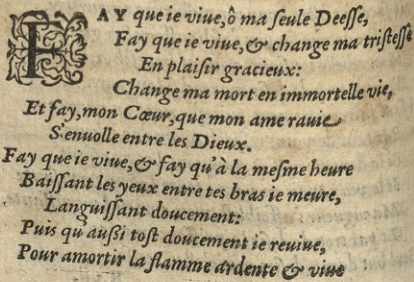 FAY que ie viue, ô ma seule Deesse,
Fay que ie viue, & change ma tristesse
En plaisir gracieux:
Change ma mort en immortelle vie,
Et fay, mon Cœur, que mon ame rauie
S'enuolle entre les Dieux.
Fay que ie viue, & fay qu'à la mesme heure
Baissant les yeux entre tes bras ie meure,
Languissant doucement:
Puis qu'aussi tost doucement ie reuiue,
Pour amortir la flamme ardente & viue